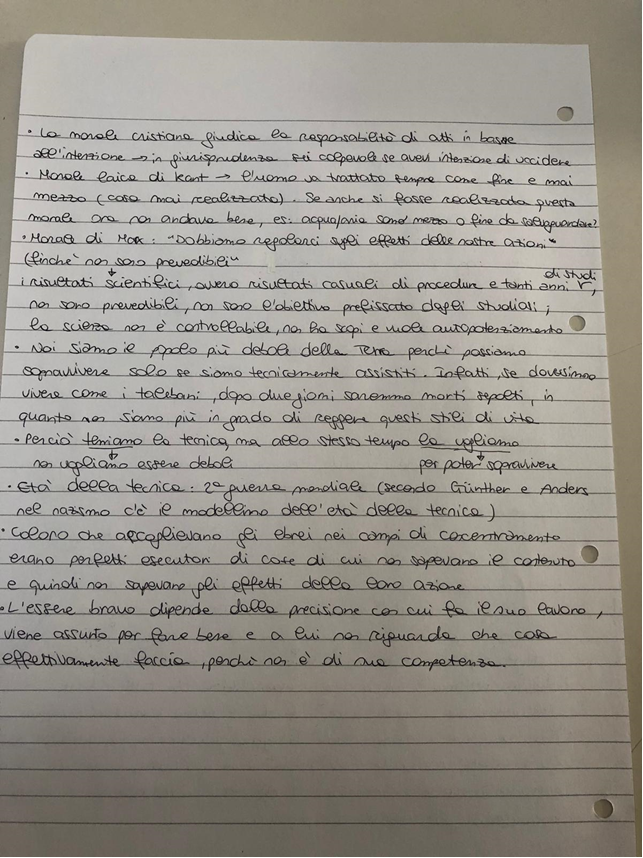 • La morale cristiana giudica la responsabilità di atti in basse
all'intenzione → in giurisprudenza sei colpevole se avevi intenzione di uccidere
• Morale laica di Kant → l'uomo va trattato sempre come fine e mai
mezzo (cosa mai realizzata). Se anche si fosse realizzata questa
morale ora non andava bene, es: acqua/aria sono mezzo o fine da salvaguardare?
• Morale di Max: "Dobbiamo regolarci sugli effetti delle nostre azioni"
(finché non sono prevedibili"
i risultati scientifici, ovvero risultati casuali di procedure e tanti anni di studi,
non sono prevedibili, non sono l'obiettivo prefissato dagli studiosi;
la scienza non è controllabile, non ha scopi e vuole autopotenziamento
• Noi siamo il popolo più debole della Terra perché possiamo
sopravvivere solo se siamo tecnicamente assistiti. Infatti, se dovessimo
vivere come i talebani, dopo due giorni saremmo morti sepolti, in
quanto non siamo più in grado di reggere questi stili di vita
• Perciò temiamo la tecnica, ma allo stesso tempo la vogliamo
non vogliamo essere deboli per poter sopravvivere
• Età della tecnica: 2ª guerra mondiale (secondo Günther e Anders
nel nazismo c'è il modellino dell'età della tecnica)
• Coloro che accoglievano gli ebrei nei campi di concentramento
erano perfetti esecutori di cose di cui non sapevano il contenuto
e quindi non sapevano gli effetti della loro azione
• L'essere bravo dipende dalla precisione con cui fa il suo lavoro,
viene assunto per fare bene e a lui non riguarda che cosa
effettivamente faccia, perché non è di sua competenza.